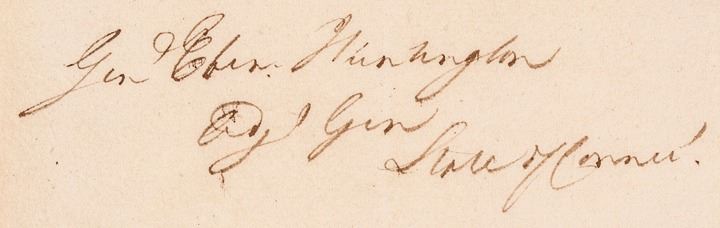 Genl Eben. Huntington
Adjt Gen
State of Connect.